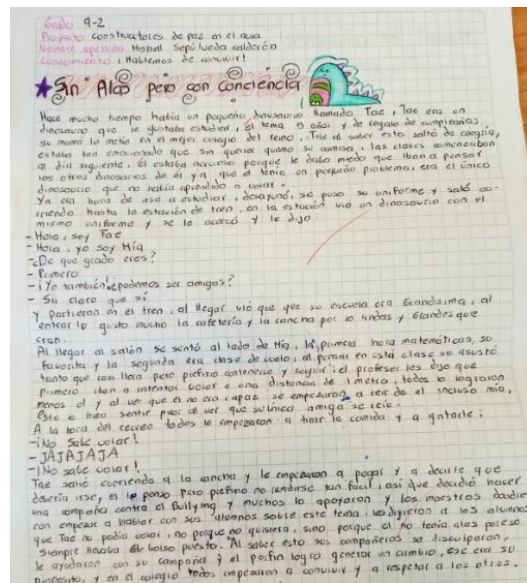 Grado 9-2
Proyecto constructores de paz en el aula
Nombre apellido: Mishell Sepúlveda calderón
Conocimiento: Hablemos de convivir!
Sin Alas pero con conciencia
Hace mucho tiempo había un pequeño dinosaurio llamado Tae, Tae era un
dinosaurio que le gustaba estudiar, él tenía 5 años y de regalo de cumpleaños
su mamá lo metio en el mejor colegio del reino, Tae al saber esto saltó de alegría,
estaba tan emocionado que sin querer quemo su camisa, las clases comenzaban
al día siguiente, él estaba nervioso porque le daba miedo que iban a pensar
los otros dinosaurios de él ya que él tenía un pequeño problema, era el único
dinosaurio que no había aprendido a volar.
Ya era hora de irse a estudiar, desayunó, se puso su uniforme y salió co-
rriendo hasta la estación de tren, en la estación vió un dinosaurio con el
mismo uniforme y se le acercó y le dijo:
- Hola, soy Tae
- Hola, yo soy Mía
- ¿De que grado eres?
- Primero
- ¡Yo también! ¿podemos ser amigos?
- Su claro que sí
y partieron en el tren, al llegar vió que que su escuela era Grandisima, al
entrar le gusto mucho la cafetería y la cancha por lo lindas y Grandes que
eran.
Al llegar al salón se sentó al lado de Mía, la primera hora matemáticas, su
Favorita y la segunda era clase de vuelo, al pensar en esta clase se asustó
tanto que casi llora pero prefirio contenerse y seguir; el profesor les dijo que
primero iban a intentar volar a una distancia de 1 metro, todos lo lograron
menos él y al ver que él no era capaz se empezaron a reir de él incluso mía,
Esto lo hizo sentir peor al ver que su única amiga se reía.
A la hora del recreo todos le empezaron a tirar la comida y a gritarle:
- ¡No Sabe volar!
- JAJAJAJA
- ¡No sabe volar!
Tae salió corriendo a la cancha y le empezaron a pegar y a decirle que
debería irse, él lo penso pero prefirio no rendirse tan fácil, así que decidió hacer
una campaña contra el Bullying y muchos lo apoyaron y los maestros
con empezar a hablar con sus alumnos sobre este tema, les dijeron a los alumnos
que Tae no podía volar, no porque no quisiera, sino porque él no tenía alas
siempre llevaba el bolso puesto. Al saber esto sus compañeros se disculparon,
le ayudaron con su campaña y él porfin logro generar un cambio, ese era su
proposito, y en el colegio todos empezaron a convivir y a respetar a los otros.